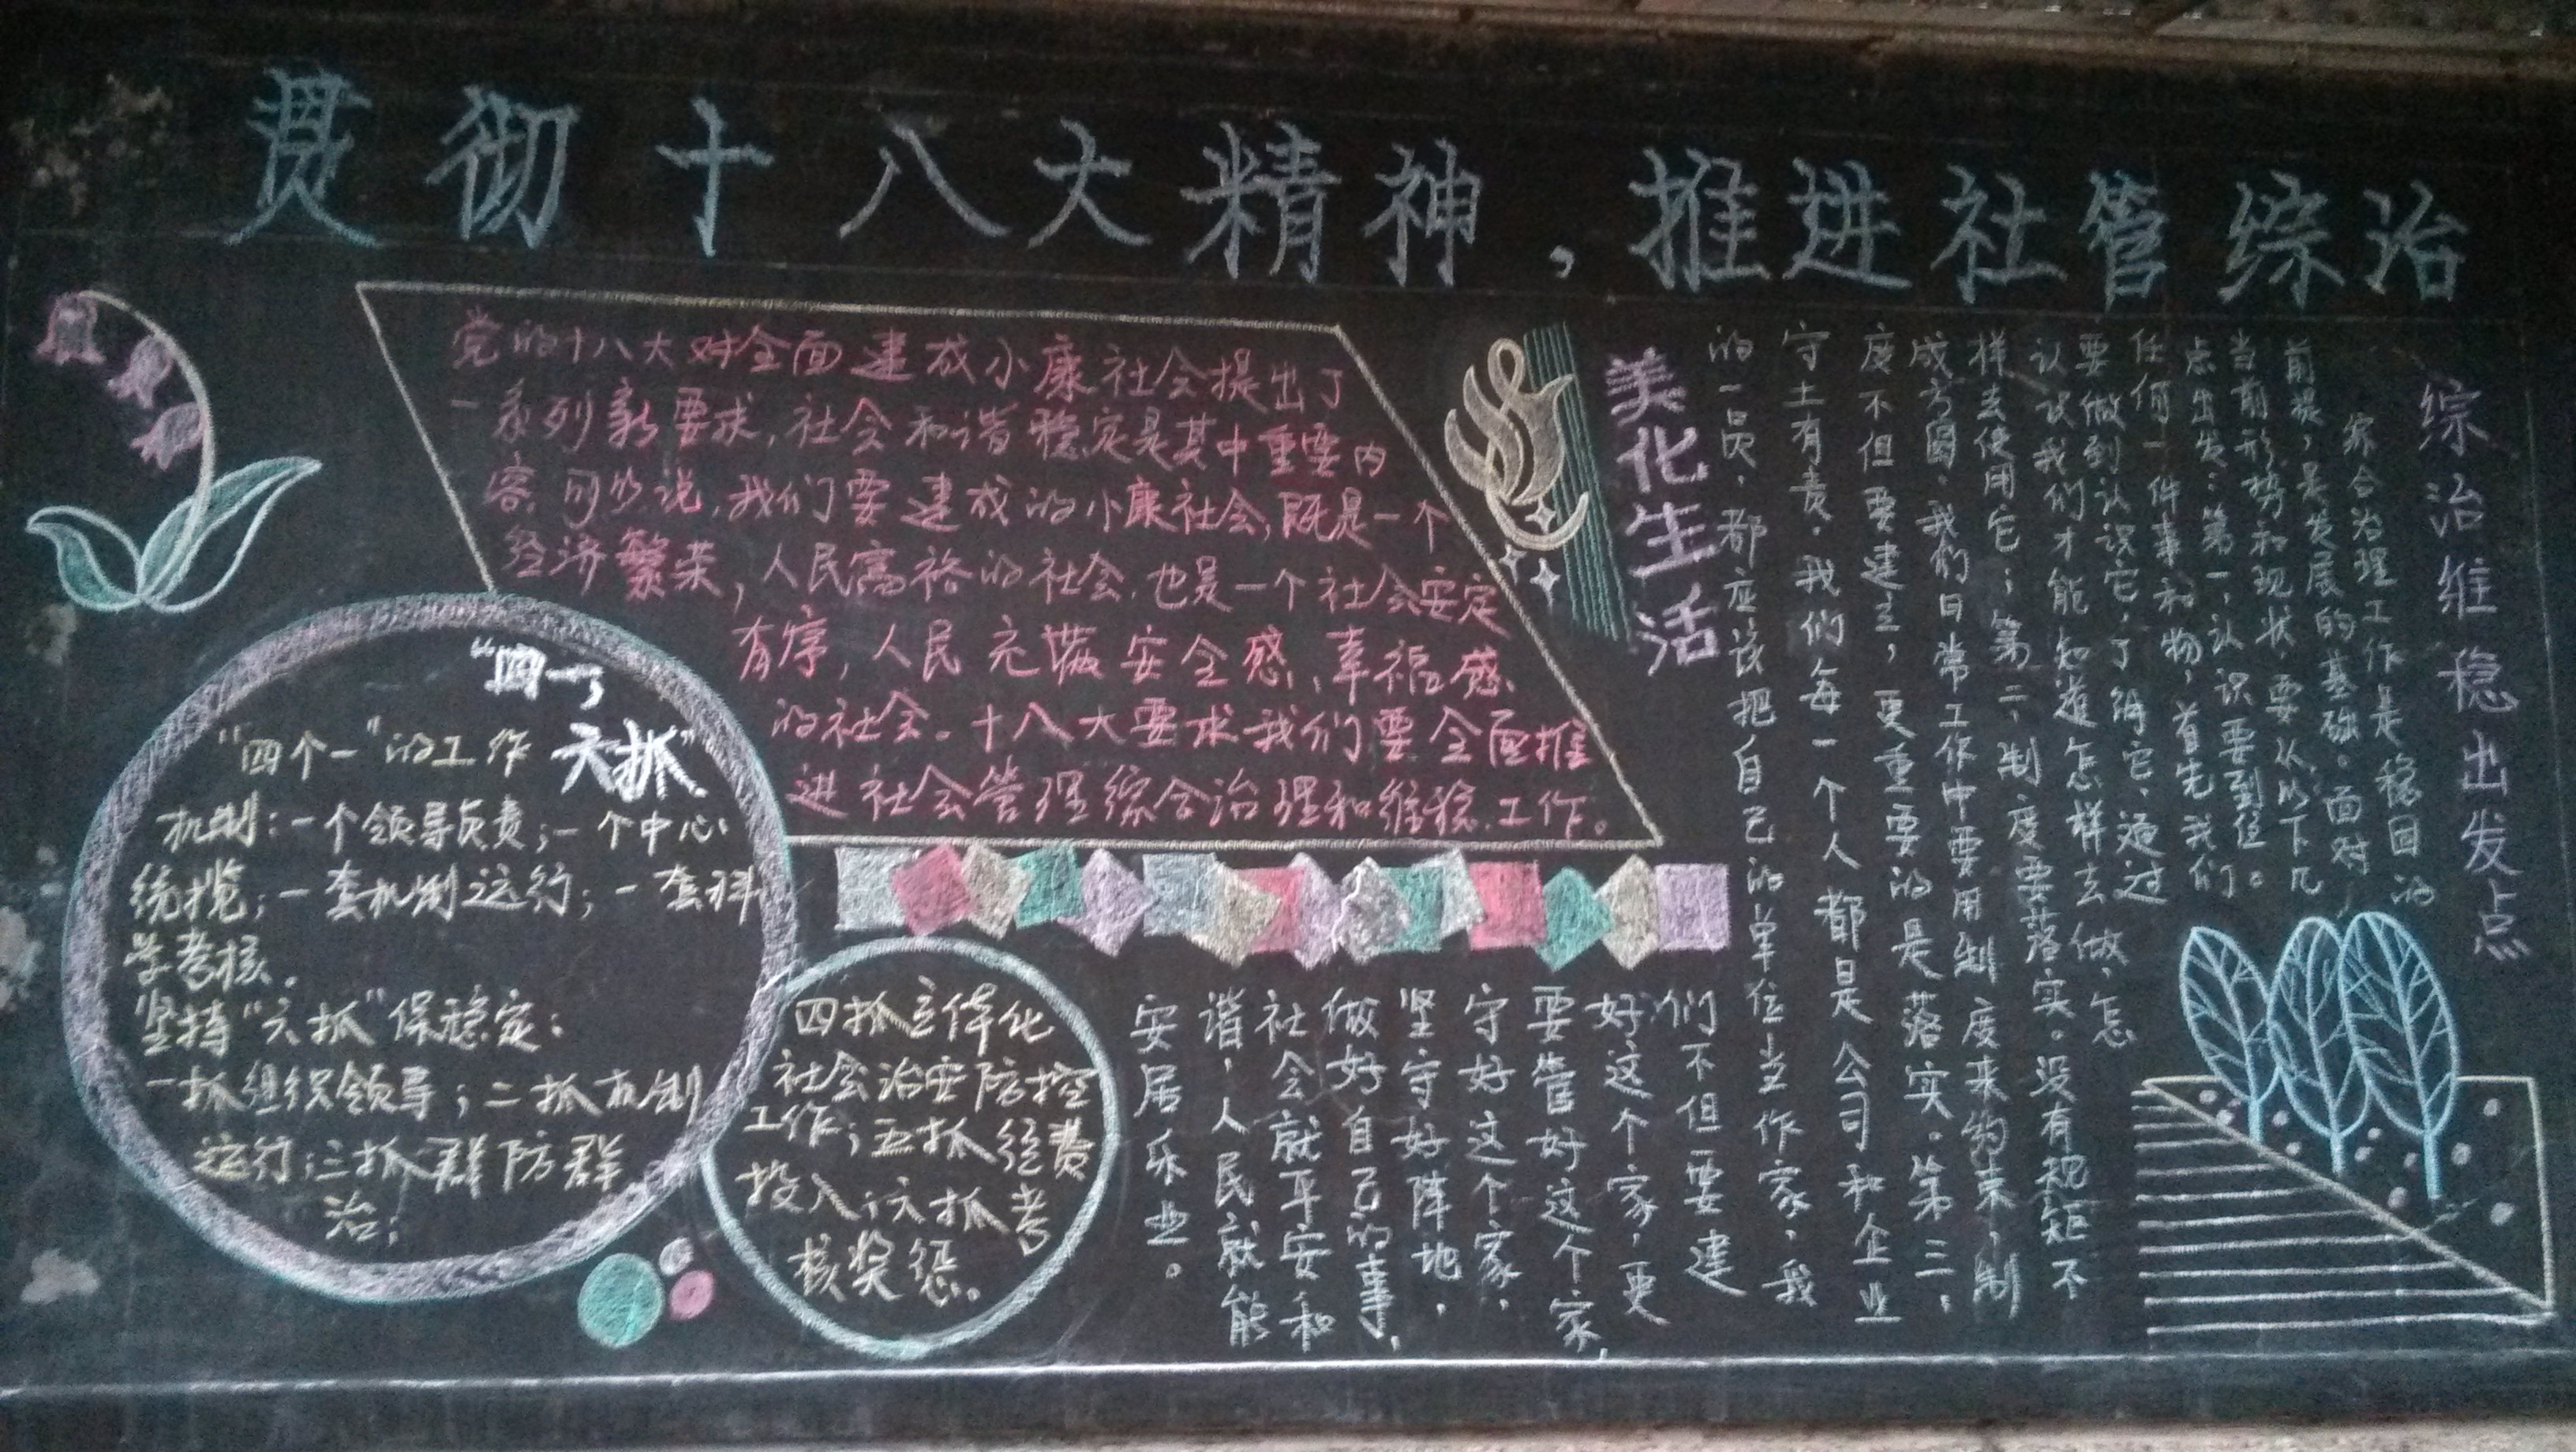 贯彻十八大精神，推进社管综治
党的十八大对全面建成小康社会提出了
一系列新要求，社会和谐稳定是其中重要内
容。可以说，我们要建成的小康社会，既是一个
经济繁荣，人民富裕的社会，也是一个社会安定
有序，人民充满安全感、幸福感
的社会。十八大要求我们要全面推
进社会管理综合治理和维稳工作。
“四一，
六抓”
“四个一”的工作
机制：一个领导负责；一个中心
统揽；一套机制运行；一套科
学考核。
坚持“六抓”保稳定：
一抓组织领导；二抓机制
运行；三抓群防群
治；
四抓立体化
社会治安防控
工作；五抓经费
投入；六抓考
核奖惩。
美化生活
综治维稳出发点
综合治理工作是稳固的
前提，是发展的基础。面对
当前形势和现状，要从以下几
点出发：第一，认识要到位。
任何一件事和物，首先我们
要做到认识它，了解它，通过
认识我们才能知道怎样去做，怎
样去使用它；第二，制度要落实。没有规矩不
成方圆。我们日常工作中要用制度来约束，制
度不但要建立，更重要的是落实。第三，
守土有责。我们每一个人都是公司和企业
的一员，都应该把自己的单位当作家，我
们不但要建
好这个家，更
要管好这个家，
守好这个家，
坚守好阵地，
做好自己的事，
社会就平安和
谐，人民就能
安居乐业。